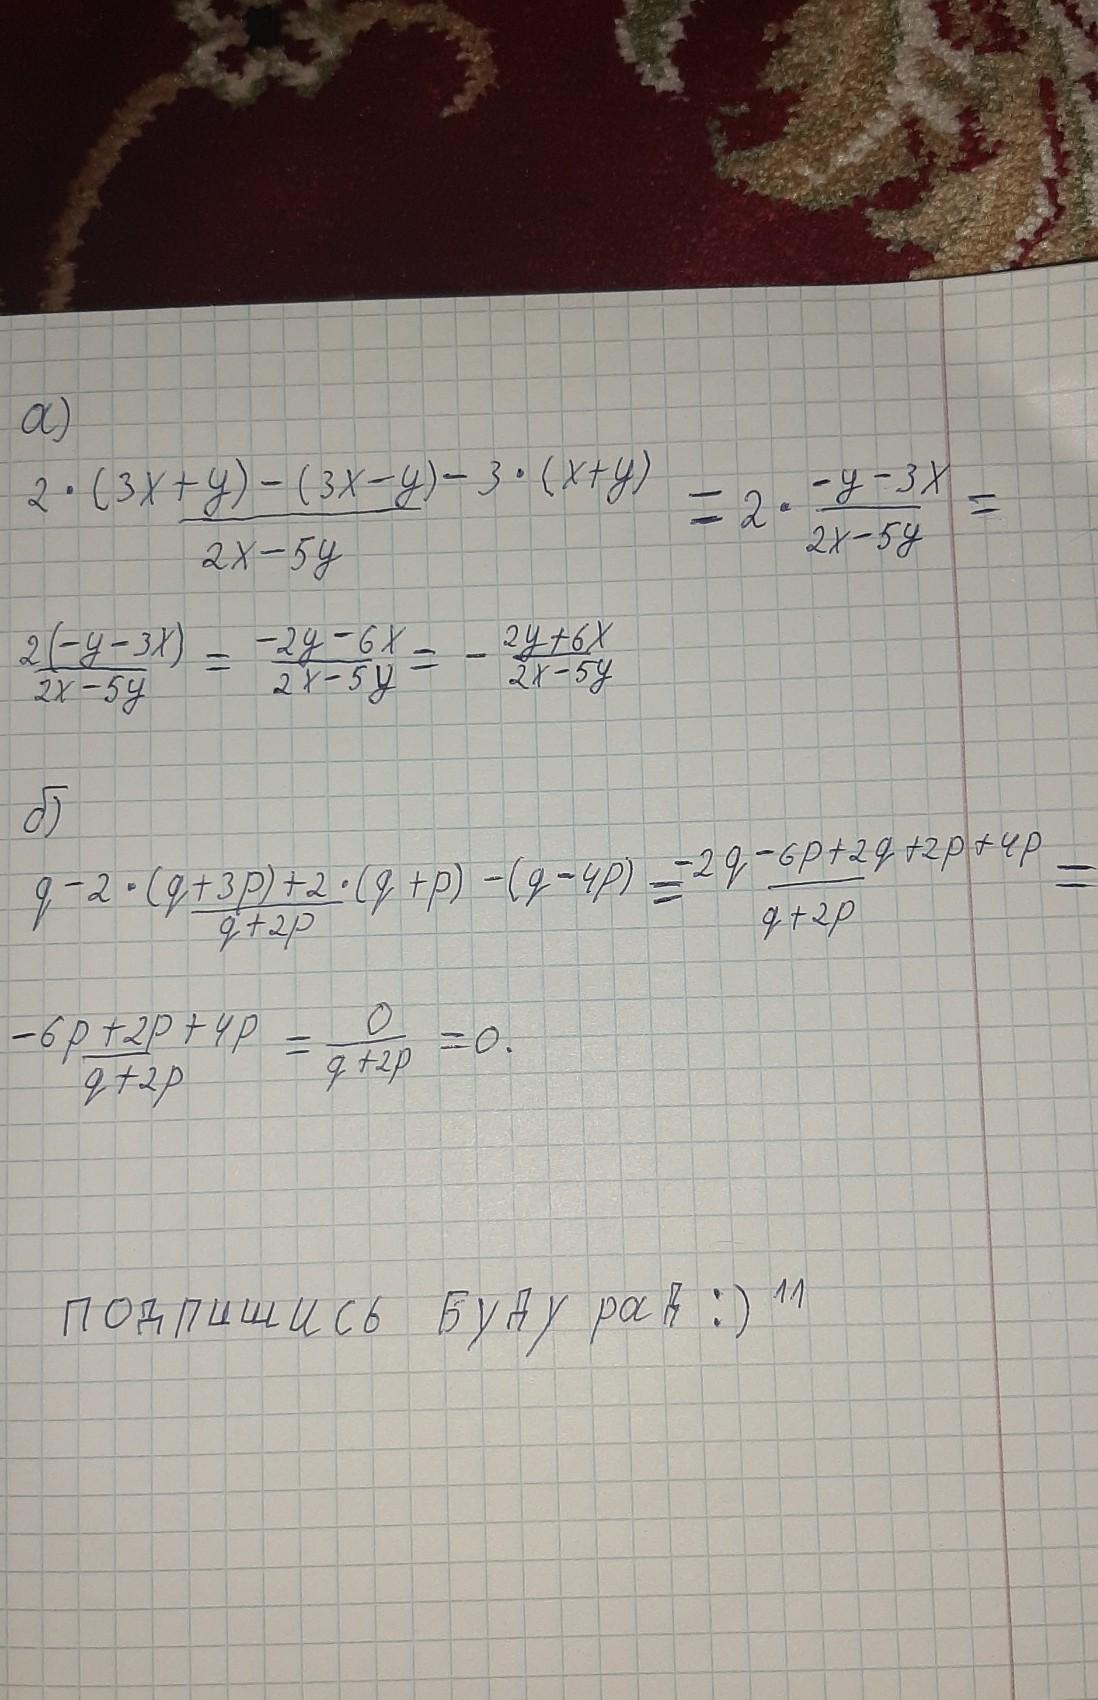 а)
2·(3x+y)-(3x-y)-3·(x+y)/2x-5y = 2·-y-3x/2x-5y =
2(-y-3x)/2x-5y = -2y-6x/2x-5y = -2y+6x/2x-5y
б)
q-2·(q+3p)+2·(q+p)-(q-4p)/q+2p = -2q-6p+2q+2p+4p/q+2p =
-6p+2p+4p/q+2p = 0/q+2p =0.
подпишись буду рад :) 11